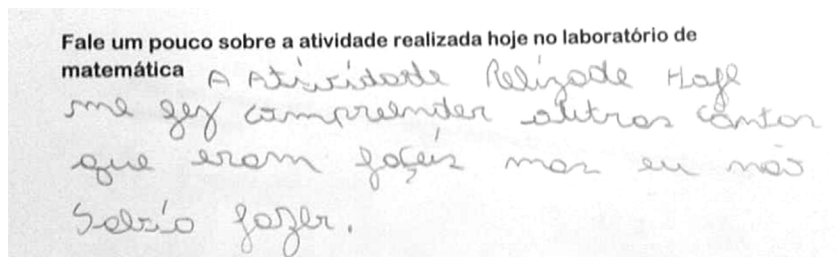 Fale um pouco sobre a atividade realizada hoje no laboratório de
matemática A Atividade Relizade Hoje
me fez compreender outras contas
que eram façeis mas eu não
Sabio fazer.